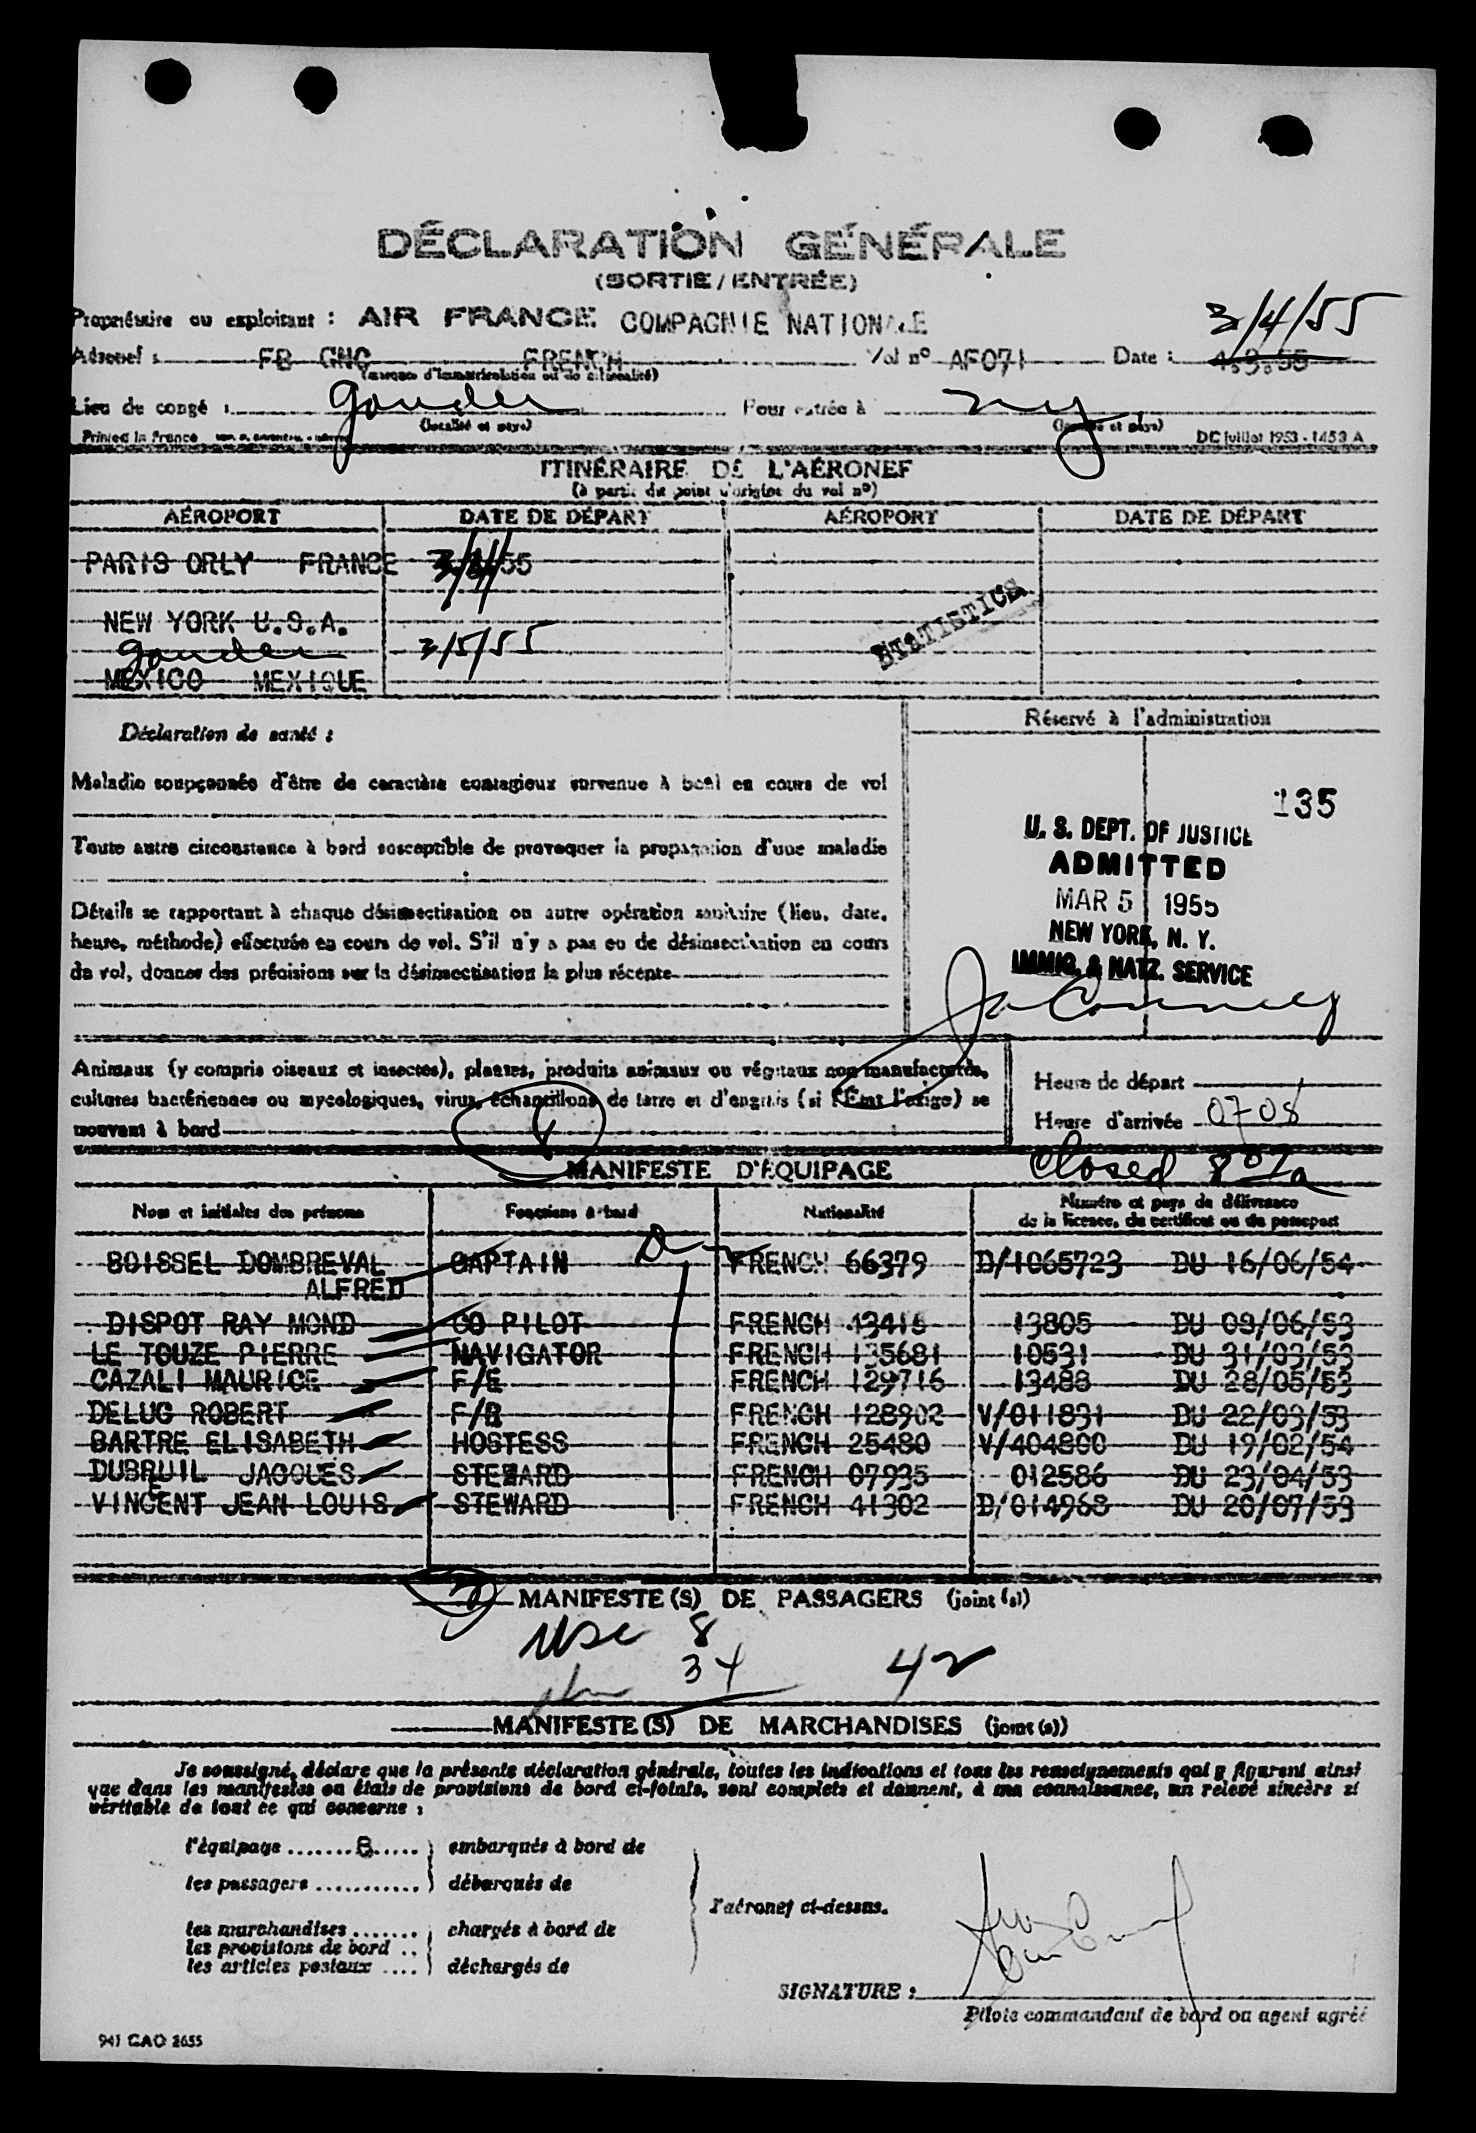 DÉCLARATION GÉNÉRALE
(SORTIE / ENTRÉE)
Propriétaire ou exploitant : AIR FRANCE COMPAGNIE NATIONALE 3/4/55
Aéronef : FRENCH Vol nº AF071 Date :
(marques d'immatriculation ou de nationalité)
Lieu de congé : Gander Pour entrée à NY
(localité et pays) (localité et pays)
Printed in France DC juillet 1953 - 1453 A
ITINÉRAIRE DE L'AÉRONEF
(à partir du point d'origine du vol nº)
AÉROPORT DATE DE DÉPART AÉROPORT DATE DE DÉPART
PARIS ORLY FRANCE 3/4/55
NEW YORK U.S.A.
Gander 3/5/55
STATISTICS
MEXICO MEXIQUE
Déclaration de santé :
Réservé à l'administration
Maladie soupçonnée d'être de caractère contagieux survenue à bord en cours de vol
135
Toute autre circonstance à bord susceptible de provoquer la propagation d'une maladie
U. S. DEPT. OF JUSTICE
ADMITTED
MAR 5 1955
NEW YORK, N. Y.
IMMIG. & NATZ. SERVICE
Détails se rapportant à chaque désinsectisation ou autre opération sanitaire (lieu, date,
heure, méthode) effectuée en cours de vol. S'il n'y a pas eu de désinsectisation en cours
de vol, donner des précisions sur la désinsectisation la plus récente
Animaux (y compris oiseaux et insectes), plantes, produits animaux ou végétaux non manufacturés,
cultures bactériennes ou mycologiques, virus, échantillons de terre et d'engrais (si l'État l'exige) se
trouvant à bord
Heure de départ
Heure d'arrivée 0708
Closed
MANIFESTE D'ÉQUIPAGE
Nom et initiales des prénoms Fonctions à bord Nationalité Numéro et pays de délivrance
de la licence, du certificat ou du passeport
BOISSEL DOMBREVAL CAPTAIN FRENCH 66379 D/1065723 DU 16/06/54
ALFRED
DISPOT RAY MOND CO PILOT FRENCH 43416 13805 DU 09/06/53
LE TOUZE PIERRE NAVIGATOR FRENCH 135681 10531 DU 31/03/53
CAZALI MAURICE F/E FRENCH 129716 13488 DU 28/05/53
DELUG ROBERT F/R FRENCH 128902 V/011831 DU 22/03/53
BARTRE ELISABETH HOSTESS FRENCH 25480 V/404800 DU 19/02/54
DUBRUIL JACQUES STEWARD FRENCH 07935 012586 DU 23/04/53
VINCENT JEAN LOUIS STEWARD FRENCH 41302 D/014968 DU 20/07/53
MANIFESTE (S) DE PASSAGERS (joint (s))
usc 8
34 42
MANIFESTE (S) DE MARCHANDISES (joint (s))
Je soussigné, déclare que la présente déclaration générale, toutes les indications et tous les renseignements qui y figurent ainsi
que dans les manifestes ou états de provisions de bord ci-joints, sont complets et donnent, à ma connaissance, un relevé sincère et
véritable de tout ce qui concerne :
l'équipage ....... 8 ..... embarqués à bord de
les passagers ........... débarqués de
l'aéronef ci-dessus.
les marchandises ....... chargés à bord de
les provisions de bord ..
les articles postaux .... déchargés de
SIGNATURE :
Pilote commandant de bord ou agent agréé
941 GAO 2655